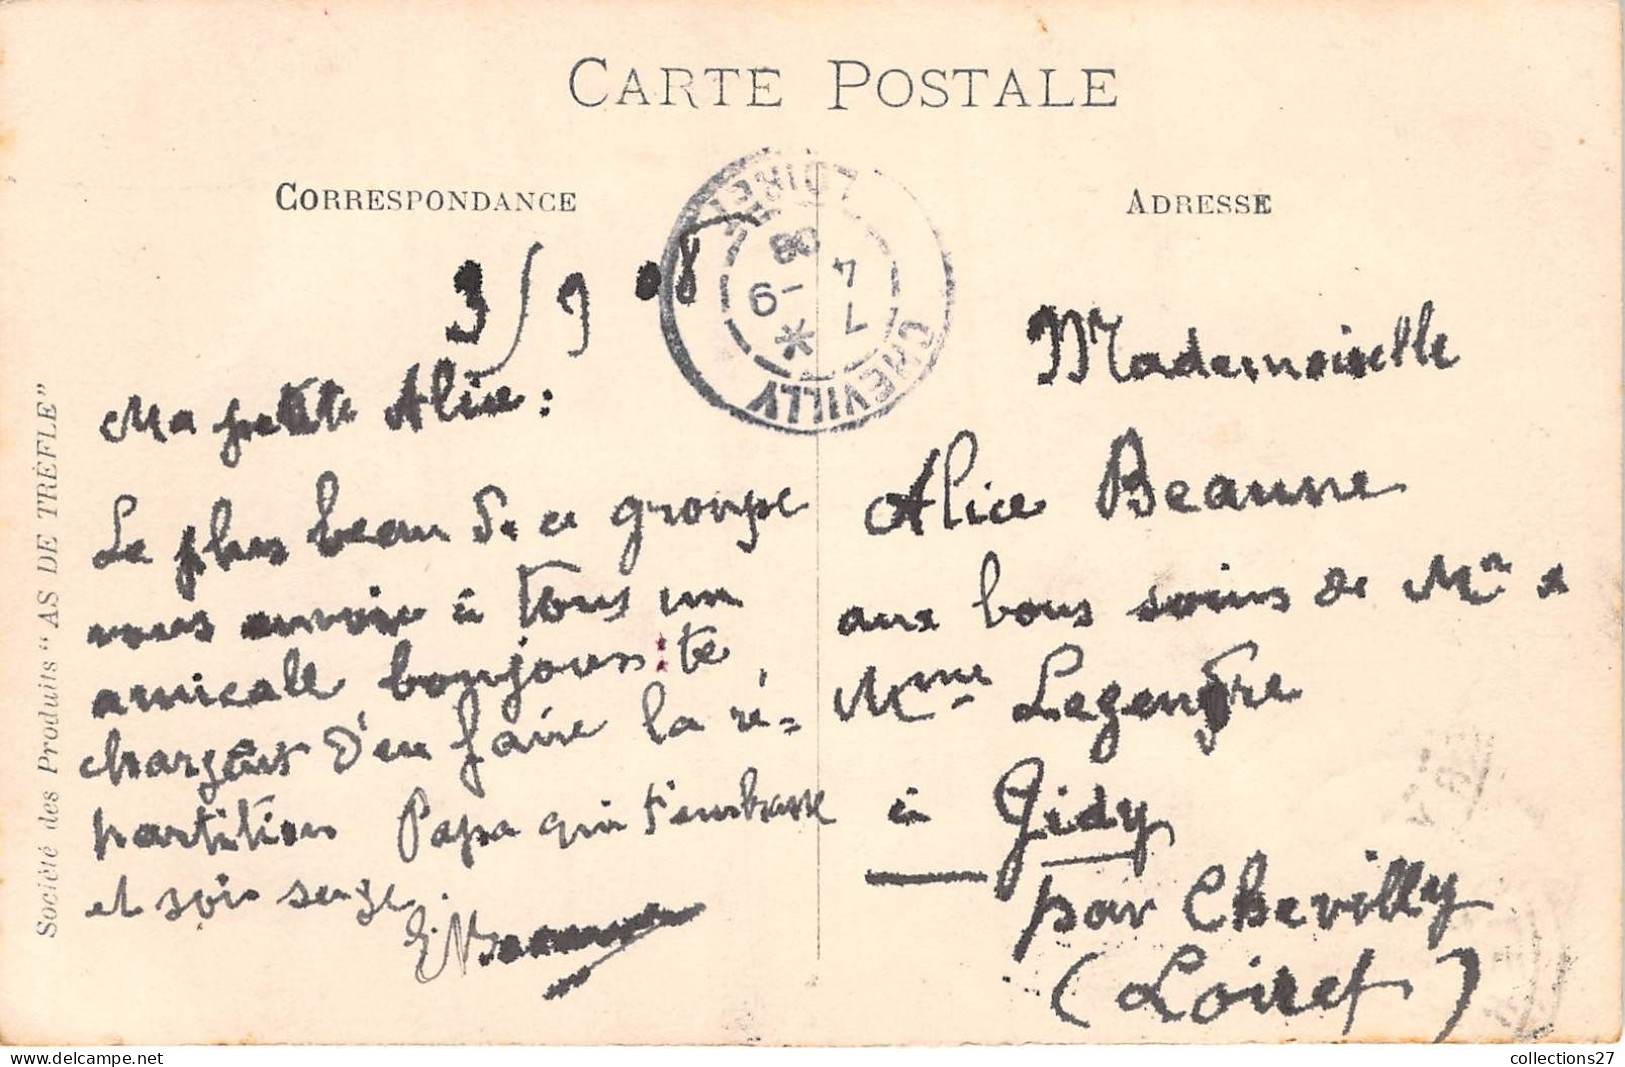 CARTE POSTALE
CORRESPONDANCE
ADRESSE
LOIRET
CHEVILLY
7 4 -9 08
3/9 08
Ma petite Alice :
Le plus beau de ce groupe
vous envoie à tous un
amicale bonjour : te
chargeant d'en faire la ré=
partition Papa qui t'embrasse
et sois sage.
E. Beaune
Mademoiselle
Alice Beaune
aux bons soins de Mr &
Mme Legendre
à Gidy
par Chevilly
(Loiret)
Société des Produits "AS DE TRÈFLE"
collections27